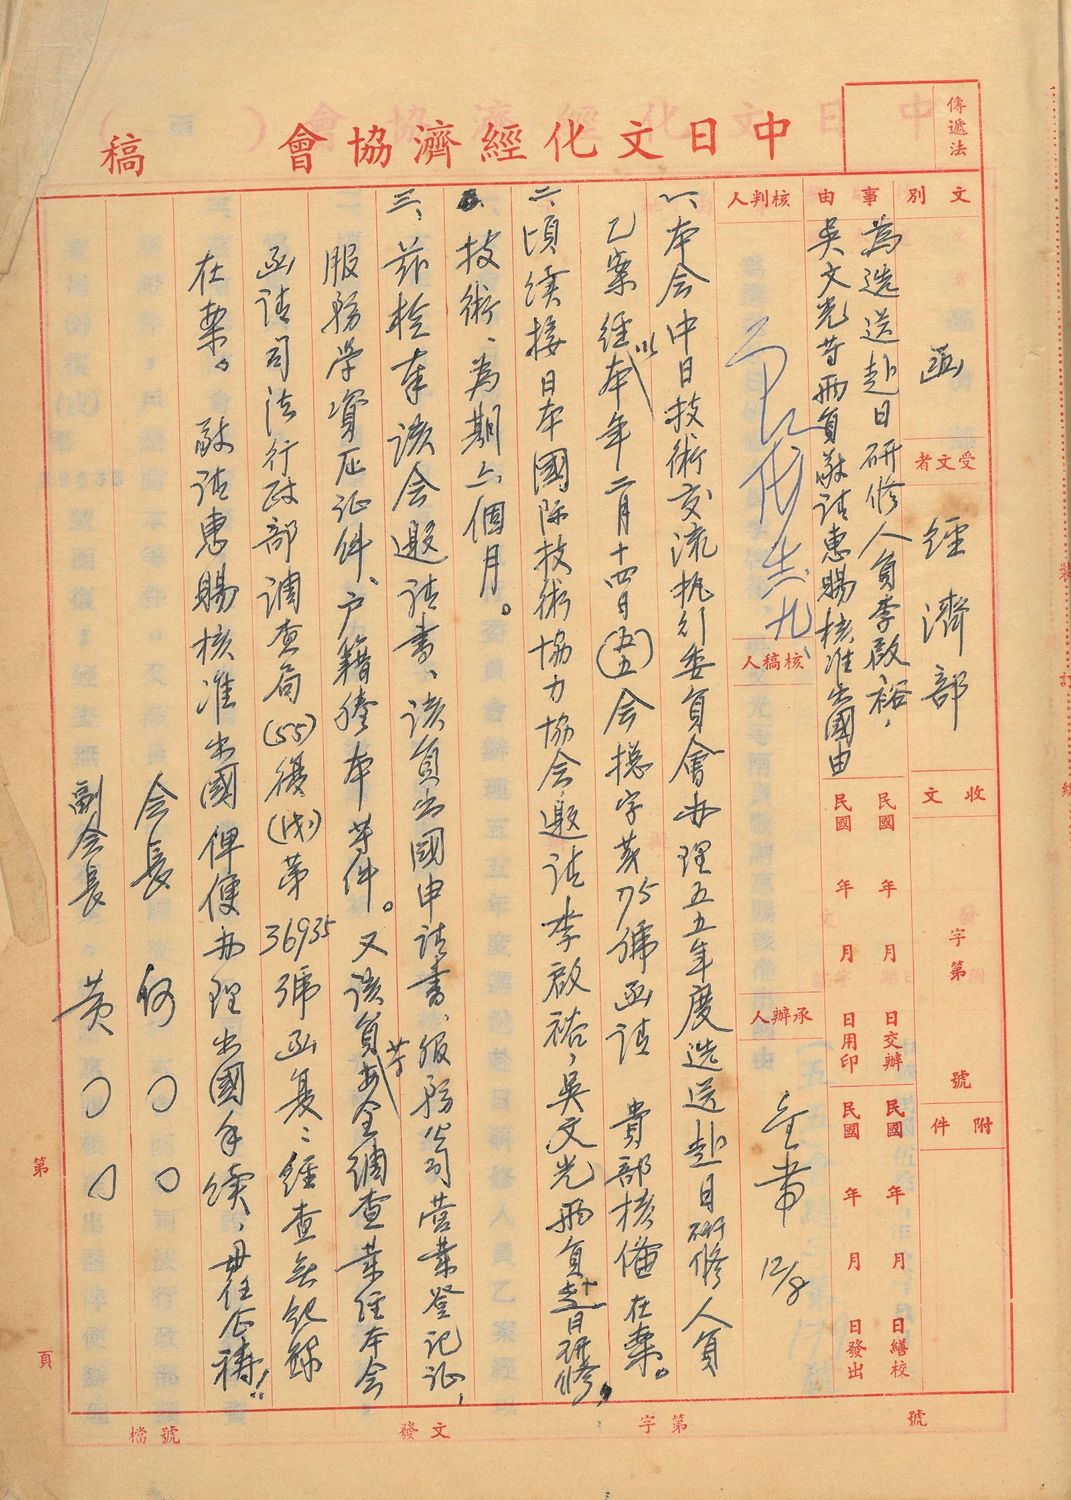 中日文化經濟協會 稿
傳遞法
文別 函
受文者 經濟部
收文 字第 號
附件
事由 為選送赴日研修人員李啟裕，
吳文光等兩員敬請惠賜核准出國由
民國 年 月 日交辦
民國 年 月 日繕校
民國 年 月 日用印
民國 年 月 日發出
核判人
核稿人
承辦人
12/8
一、本会中日技術交流執行委員會办理五五年度选送赴日研修人員
乙案經以本年二月十四日(五五)会摠字第75號函請 貴部核備在案。
二、頃續接日本國际技術協力協会邀請李啟裕，吳文光兩員赴日研修，
技術、為期六個月。
三、茲檢奉該会邀請書、該員出國申請書、服務公司营業登記证，
服務学資历证件、户籍謄本等件。又該員等安全調查業經本会
函請司法行政部調查局(55)優(戊)第36935號函复：經查無紀錄
在案。敬請惠賜核准出國俾便办理出國手續，毋任企禱！
会長 何○○
副会長 黃○○
第 頁
檔號
發文 字第 號